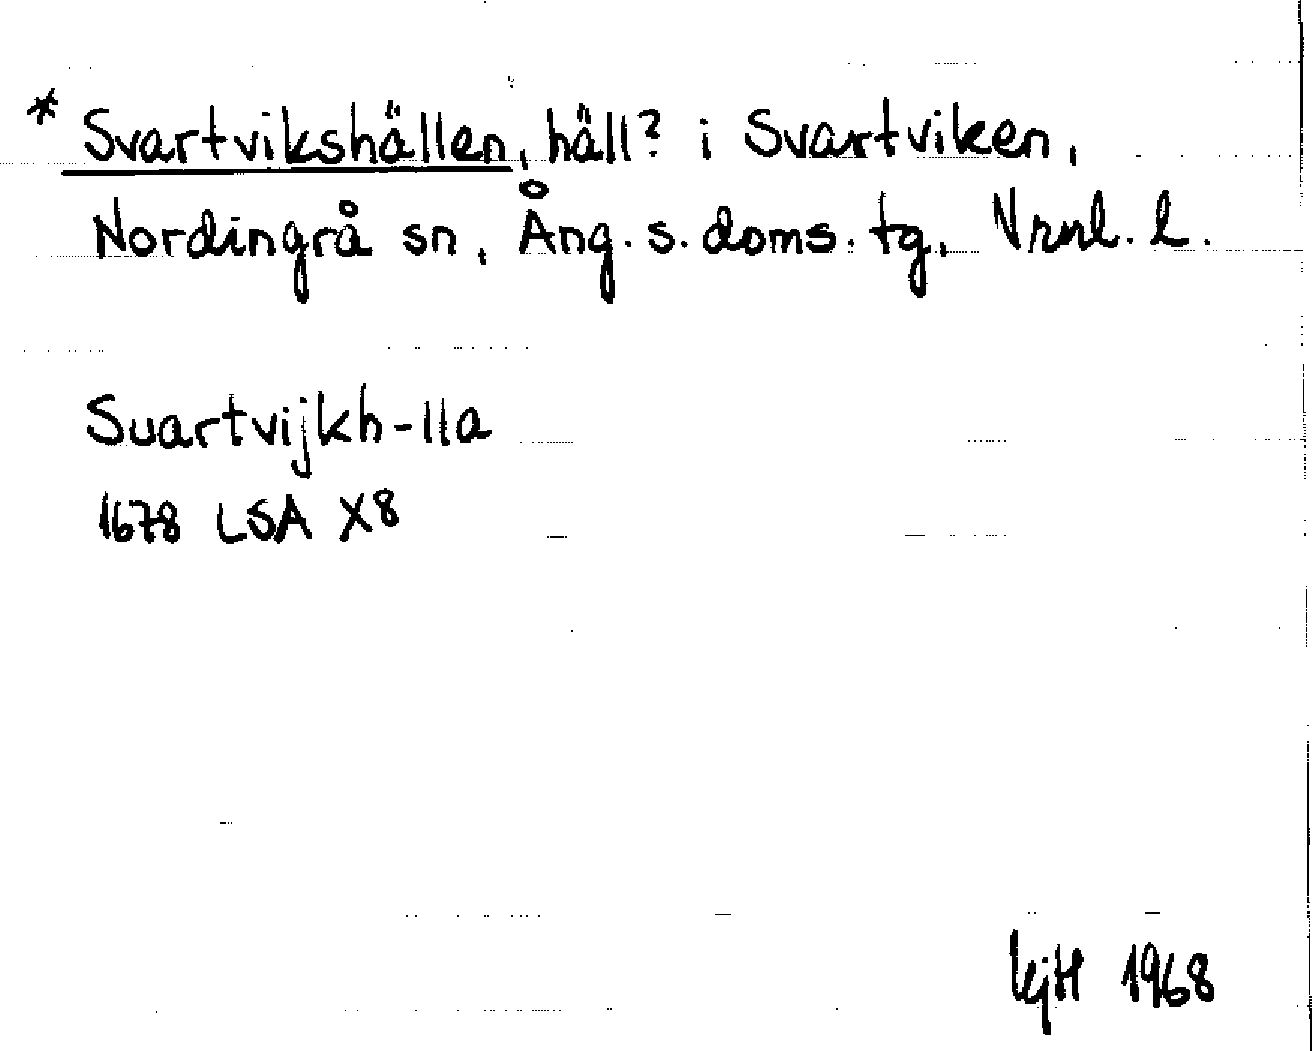 * Svartvikshällen, häll? i Svartviken,
Nordingrå sn, Ång. s. doms. tg. Vrnl. l.
Suartvijkh-lla
1678 LSA X8
kjH 1968